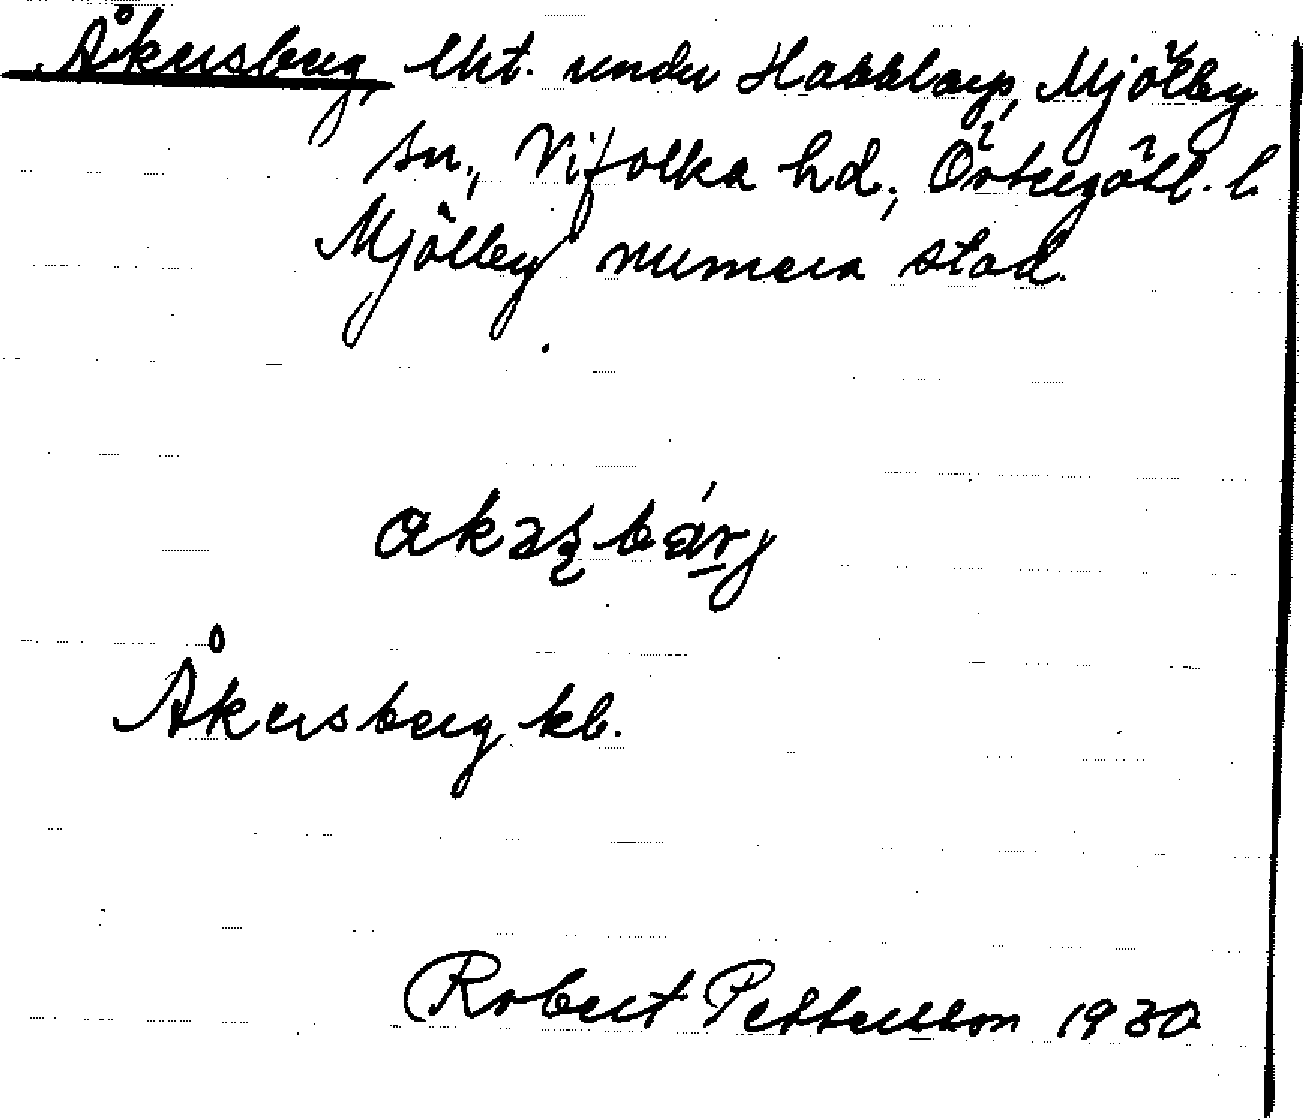 Åkersberg, lht. under Hadelarp, Mjölby
sn., Vifolka hd., Östergötl. l.
Mjölby numera stad.
Åkersberg kb.
Robert Pettersson 1930